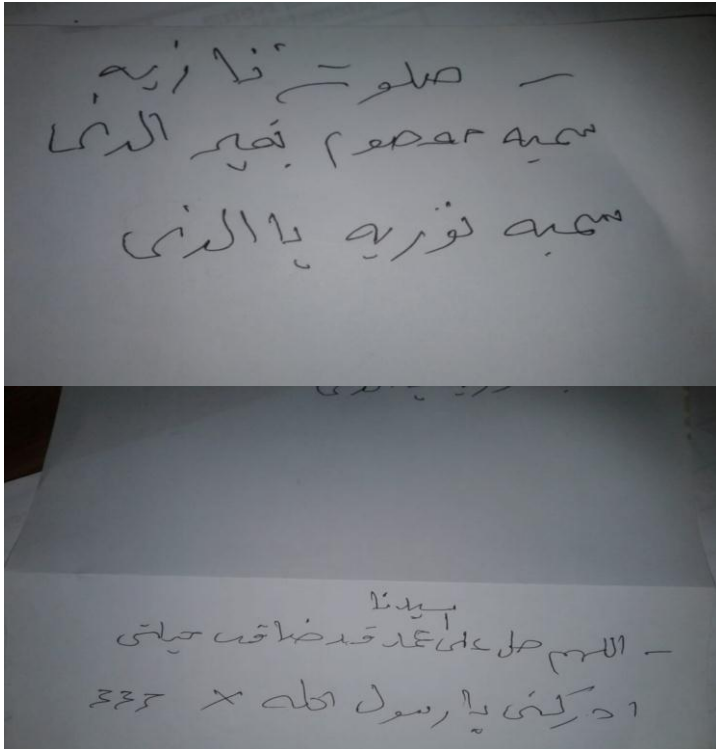 – صلوت نارية
سميه معصوم بغير الدنى
سميه نورية يا الدنى
سيدنا
– اللهم صل على محمد قد ضاقت حيلتى
ادركنى يا رسول الله × 333